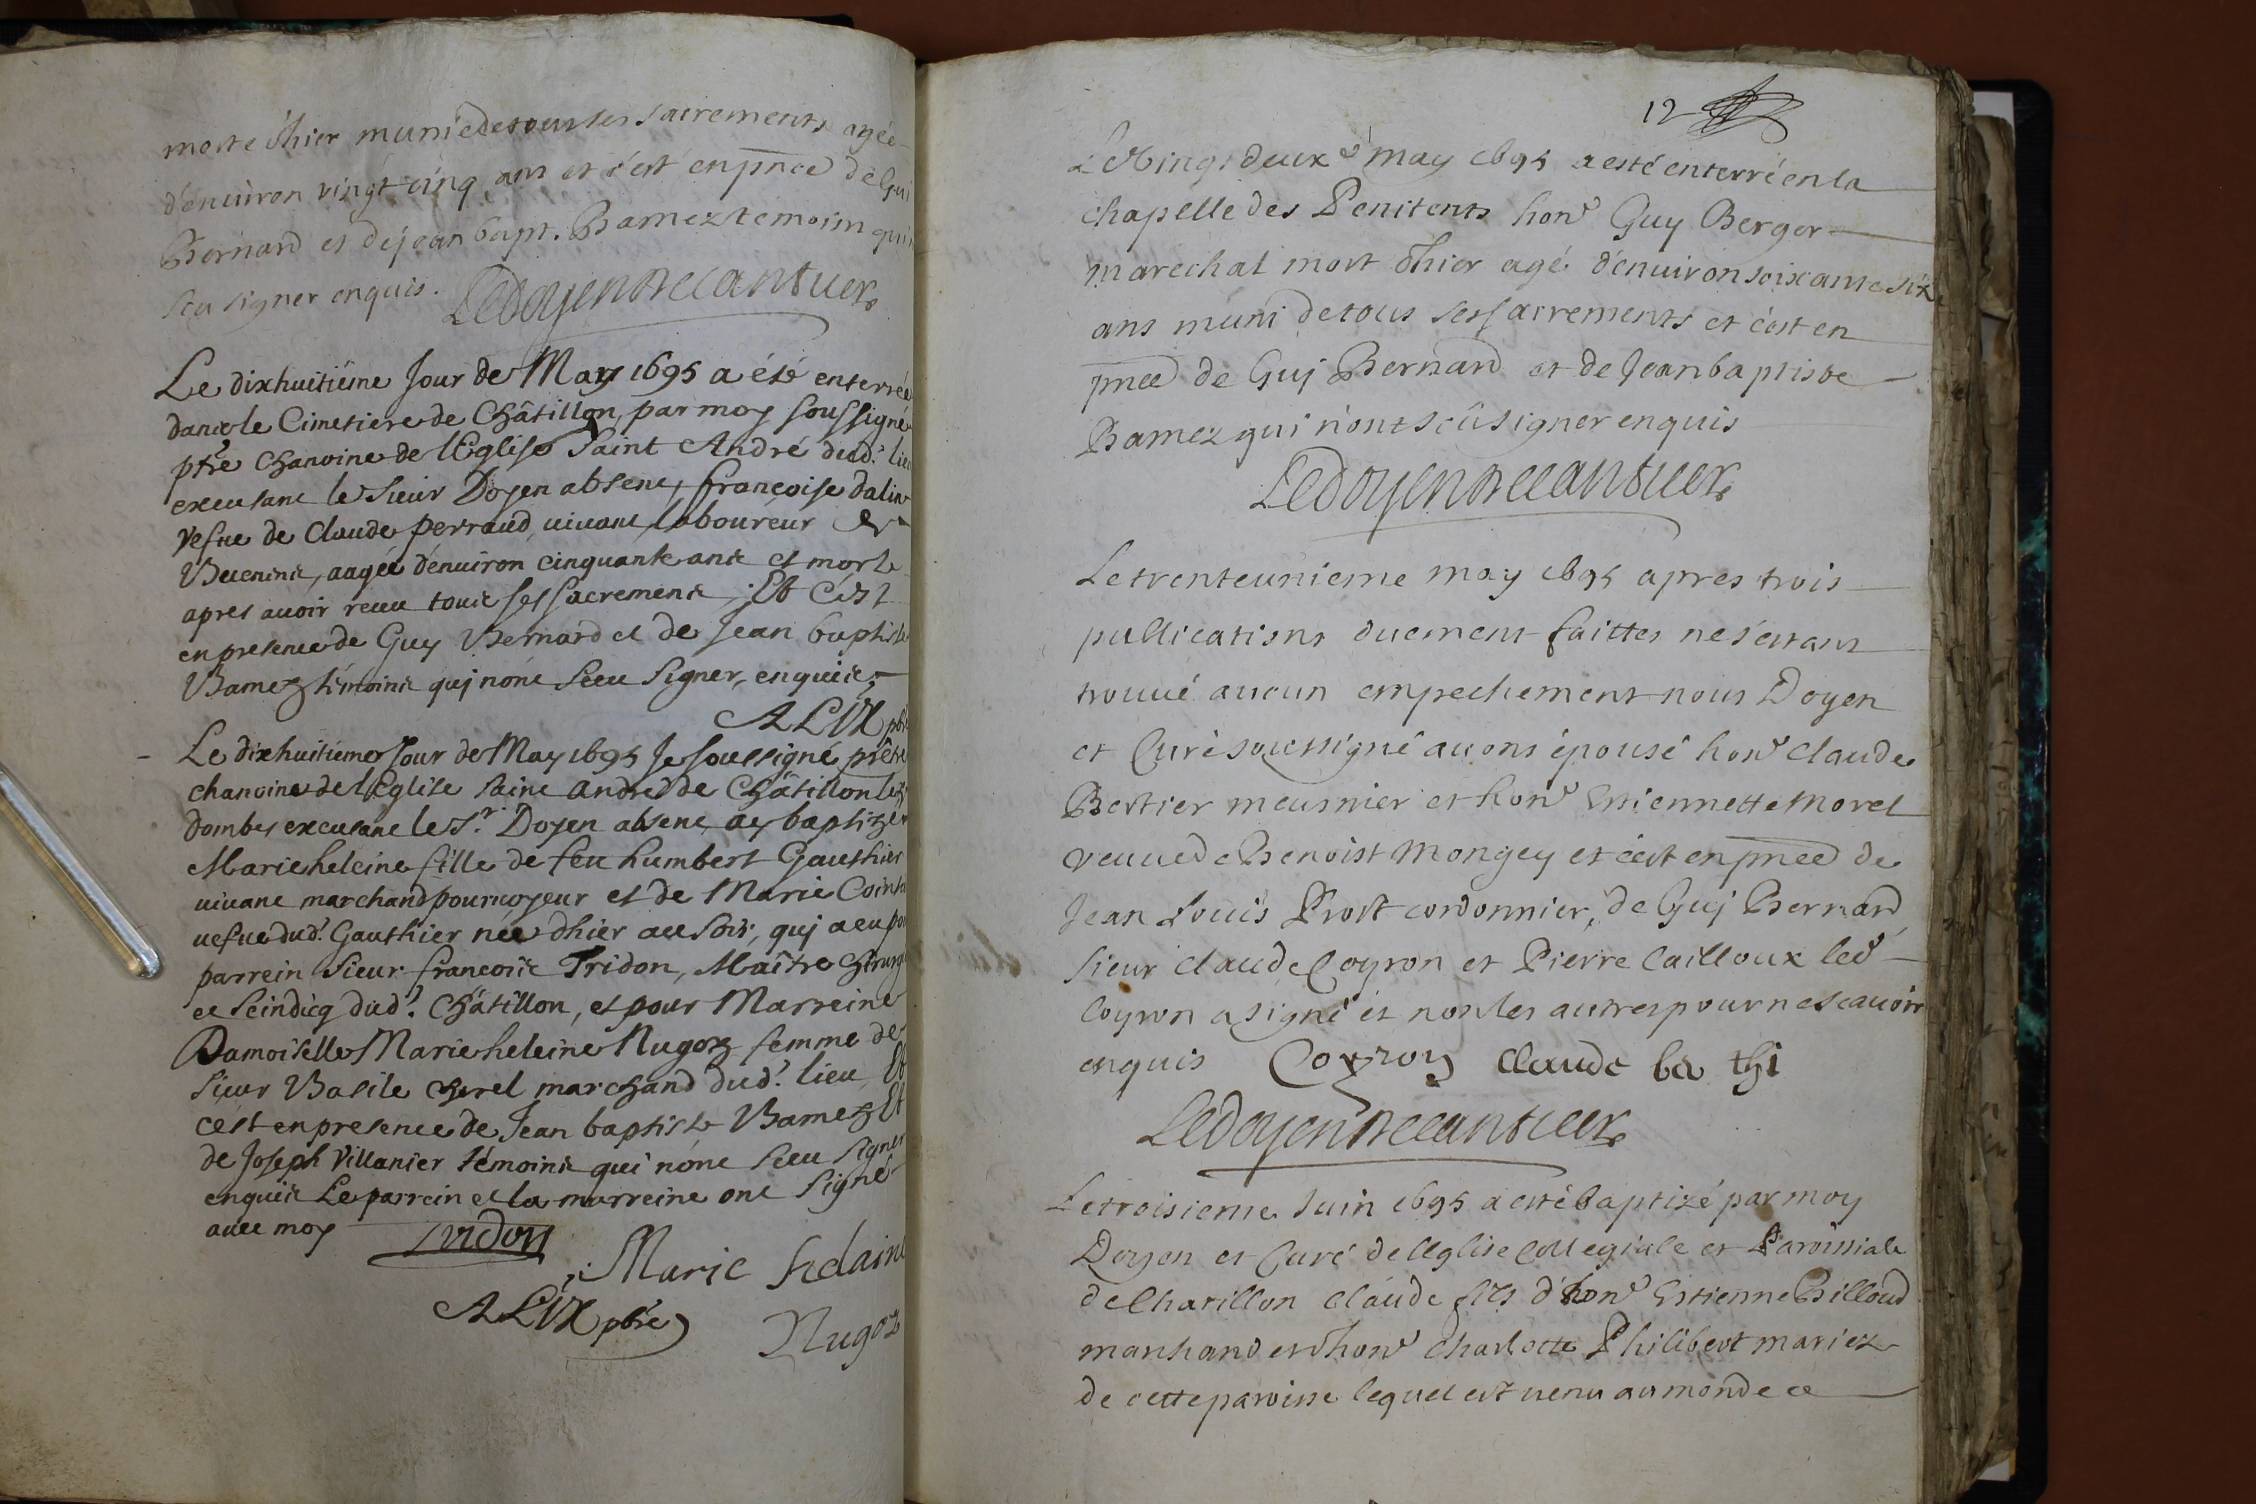 morte d'hier munie de tous les sacrements agée
d'enuiron vingt cinq ans et c'est en pnce de Gui
Bernard et de jean bapt. Bamez temoins qui n
sceu signer enquis. Ledoyen
Le dixhuitiéme Jour de May 1695 a été enterrée
dans le Cimetiere de Châtillon, par moy soussigné
ptre chanoine de l'Eglise Saint André dud.t lieu
excusant le sieur Doyen absent, françoise dalin
vefue de Claude perraud, viuant laboureur
aagée d'enuiron cinquante ans et morte
apres auoir receu tous ses sacrements; Et C'est
en presence de Guy Bernard et de Jean baptiste
Bamez témoins quj n'ont sceu signer, enquis,
ALIX pbre
Le dixhuitiéme Jour de May 1695 Je soussigné prêtre
chanoine de l'Eglise saint André de Châtillon lez
dombes excusant le S.r Doyen absent ay baptizé
Marie heleine fille de feu humbert Gauthier
viuant marchand pouruoyeur et de Marie
uefue dud.t Gauthier née d'hier au soir, quj a eu pour
parrein Sieur françois Tridon, Maître chirurg
et Scindicq dud.t Châtillon, et pour Marreine
Damoiselle Marie heleine Nugoz femme de
sieur Basile Cherel marchand dud.t lieu, Et
c'est en presence de Jean baptiste Bamez Et
de Joseph Villanier témoins qui n'ont sceu signer
enquis Le parrein et la marreine ont signé
auec moy Tridon
Marie helaine
ALIX pbre
Nugoz
12
Le Vingt deux e may 1695 a esté enterré en la
chapelle des Penitents hon.e Guy Berger
marechal mort d'hier agé d'enuiron soixante six
ans muni de tous ses sacrements et c'est en
pnce de Guj Bernard et de Jean baptiste
Bamez qui n'ont scû signer enquis
Ledoyen
Le trente unieme may 1695 apres trois
publications duement faittes ne s'estant
trouué aucun empechement nous Doyen
et Curé soussigné auons épousé hon.e Claude
Bertier meusnier et hon.e Estiennette Morel
veuue de Benoist Mongey et c'est en pnce de
Jean Louis Prost cordonnier, de Guj Bernard,
sieur Claude Coyron et Pierre Cailloux led.
Coyron a signé et non les autres pour ne scauoir
enquis Coyron Claude ber thi
Ledoyen
Le troisieme Juin 1695 a esté baptizé par moy
Doyen et Curé de l'Eglise Collegiale et Paroissiale
de Chatillon Claude fils d'hon.e Estienne Billoud
marchand et d'hon.e Charlotte Philibert mariez
de cette paroisse lequel est uenu au monde ce